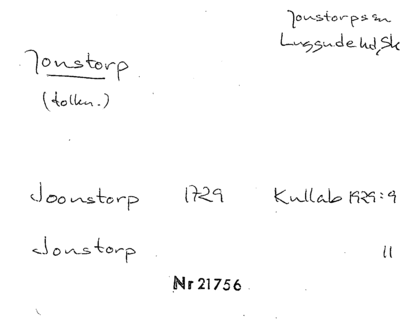 Jonstorps sn
Luggude hd, Sk
Jonstorp
(tolkn.)
Joonstorp 1729 Kullab 1929:9
Jonstorp 11
Nr 21756